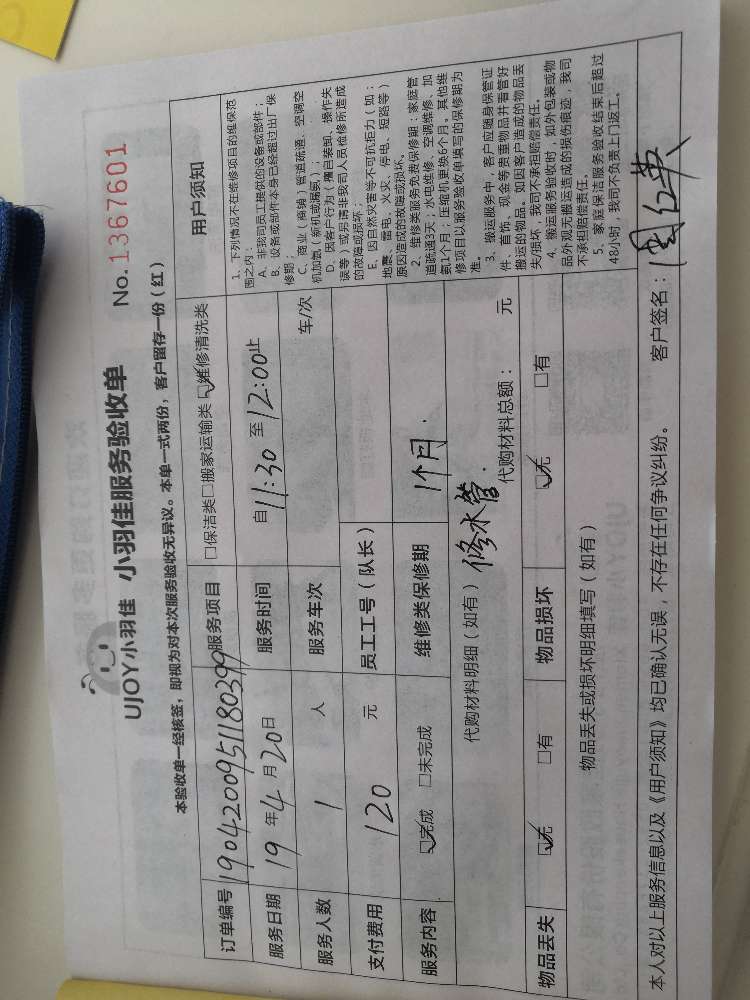 UJOY小羽佳 小羽佳服务验收单 No.1367601
本验收单一经核签，即视为对本次服务验收无异议。本单一式两份，客户留存一份（红）
订单编号 190420095118039 服务项目 □保洁类□搬家运输类☑维修清洗类 用户须知
服务日期 19年4月20日 服务时间 自11:30至12:00止
服务人数 1 人 服务车次 车/次
支付费用 120 元 员工工号（队长）
服务内容 ☑完成 □未完成 维修类保修期 1个月
代购材料明细（如有） 修水管. 代购材料总额： 元
物品丢失 ☑无 □有 物品损坏 ☑无 □有
物品丢失或损坏明细填写（如有）
1、下列情况不在维修项目的维保范
围之内：
A、非我司员工提供的设备或部件；
B、设备或部件本身已经超过出厂保
修期；
C、商业（商铺）管道疏通、空调空
机加氨（新机或漏氨）；
D、因客户行为（擅自装卸、操作失
误等）或另请非我司人员检修所造成
的故障或损坏；
E、因自然灾害等不可抗拒力（如：
地震、雷电、火灾、停电、短路等）
原因造成的故障或损坏。
2、维修类服务免费保修期：家庭管
道疏通3天；水电维修、空调维修、加
氨1个月；压缩机更换6个月。其他维
修项目以服务验收单填写的保修期为
准。
3、搬运服务中，客户应随身保管证
件、首饰、现金等贵重物品并看管好
搬运的物品。如因客户造成的物品丢
失/损坏，我司不承担赔偿责任。
4、搬运服务验收时，如外包装或物
品外观无搬运造成的损伤痕迹，我司
不承担赔偿责任。
5、家庭保洁服务验收结束后超过
48小时，我司不负责上门返工。
本人对以上服务信息以及《用户须知》均已确认无误，不存在任何争议纠纷。 客户签名：